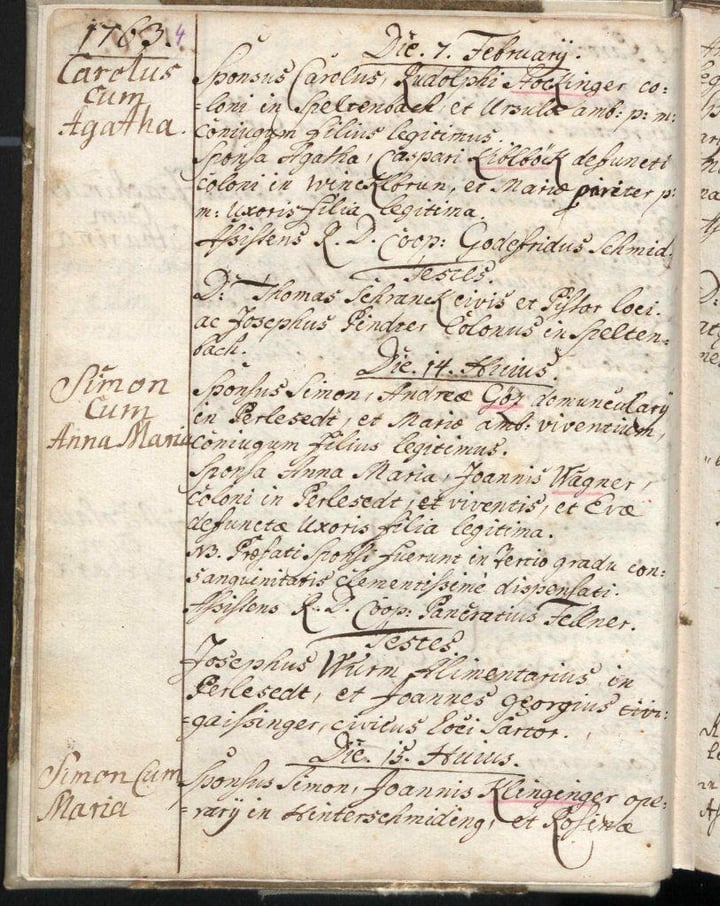 1763. 4
Carolus
cum
Agatha.
Die. 7. Februarij.
Sponsus Carolus, Rudolphi Stockinger co=
=loni in Speltenbach et Ursulæ amb: p: m:
coniugum filius legitimus.
Sponsa Agatha, Caspari Kölböck defuncti
coloni in Wincklbrun, et Mariæ pariter p:
m: Uxoris filia legitima.
Assistens R. D. Coop: Godefridus Schmid.
Testes.
D: Thomas Schranck civis et Pistor loci.
ac Josephus Pindter Colonus in Spelten=
bach.
Simon
Cum
Anna Maria
Die. 14. Huius
Sponsus Simon, Andreæ Göz domuncularij
in Perlesedt, et Mariæ amb: viventium,
coniugum filius legitimus.
Sponsa Anna Maria, Joannis Wagner,
Coloni in Perlesedt, et viventis, et Evæ
defunctæ Uxoris filia legitima.
NB. Præfati Sponsi fuerunt in tertio gradu con=
sanguinitatis clementissime dispensati.
Assistens R. D. Coop: Pancratius Fellner.
Testes.
Josephus Wurm Alimentarius in
Perlesedt, et Joannes Georgius
=gaissinger, civicus loci Sartor.
Simon Cum
Maria
Die. 15. Huius.
Sponsus Simon, Joannis Klinginger ope=
=rarij in Hinterschmiding, et Rosinæ